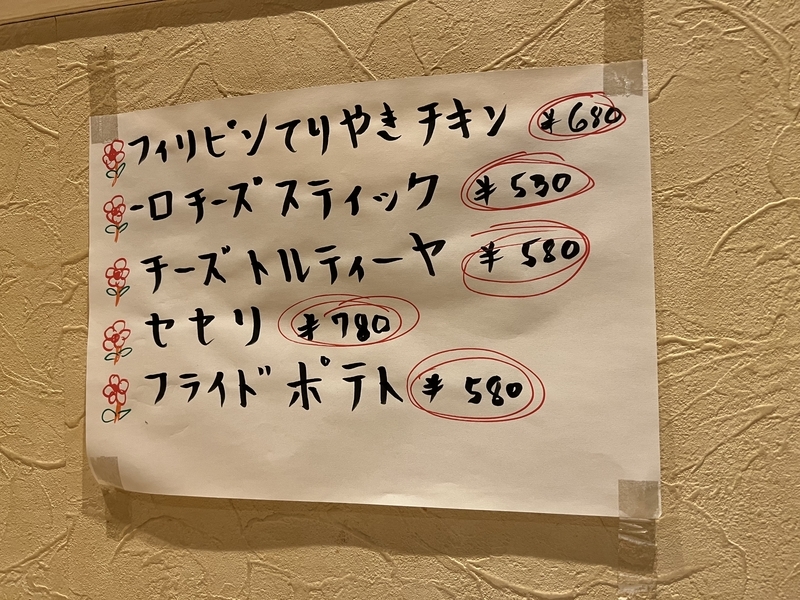 フィリピンてりやきチキン ¥680
一口チーズスティック ¥530
チーズトルティーヤ ¥580
セセリ ¥780
フライドポテト ¥580